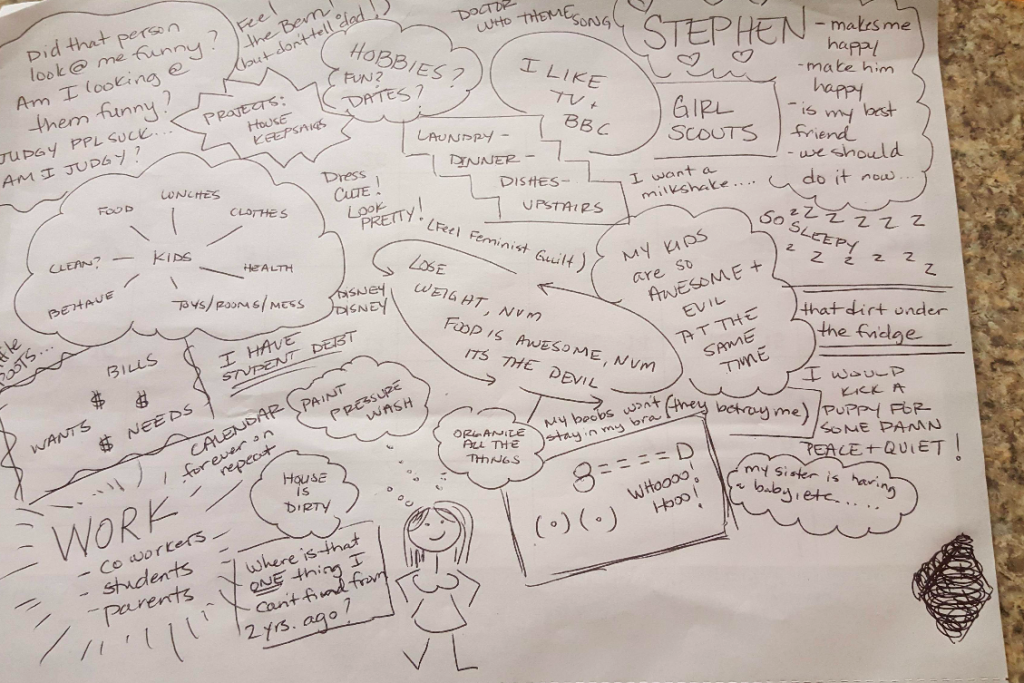 Did that person
look @ me funny?
Am I looking @
them funny?
JUDGY PPL SUCK...
AM I JUDGY?
Feel
the Bern!
(but don't tell dad!)
PROJECTS:
HOUSE
KEEPSAKES
HOBBIES?
FUN?
DATES?
DOCTOR
WHO THEME
SONG
I LIKE
TV +
BBC
STEPHEN
- makes me
happy
- make him
happy
- is my best
friend
- we should
do it now...
GIRL
SCOUTS
LAUNDRY -
DINNER -
DISHES -
UPSTAIRS
I want a
milkshake....
Dress
CUTE!
LOOK
PRETTY!
(Feel Feminist Guilt)
KIDS
FOOD
LUNCHES
CLOTHES
HEALTH
TOYS/ROOMS/MESS
BEHAVE
CLEAN?
DISNEY
DISNEY
LOSE
WEIGHT, NVM
FOOD IS AWESOME, NVM
ITS THE DEVIL
MY KIDS
are so
AWESOME +
EVIL
AT THE
SAME
TIME
SO
SLEEPY
z Z Z Z Z Z Z
z Z z z Z
that dirt under
the fridge
I WOULD
KICK A
PUPPY FOR
SOME DAMN
PEACE + QUIET!
BILLS
$ $
WANTS $ NEEDS
I HAVE
STUDENT DEBT
CALENDAR
forever on
repeat
PAINT
PRESSURE
WASH
ORGANIZE
ALL THE
THINGS
My boobs wont (they betray me)
stay in my bra
8====D
WHOOOO!
HOOO!
(o)(o)
my sister is having
a baby, etc....
HOUSE
IS
DIRTY
WORK
- coworkers
- students
- parents
Where is that
ONE thing I
can't find from
2 yrs. ago?